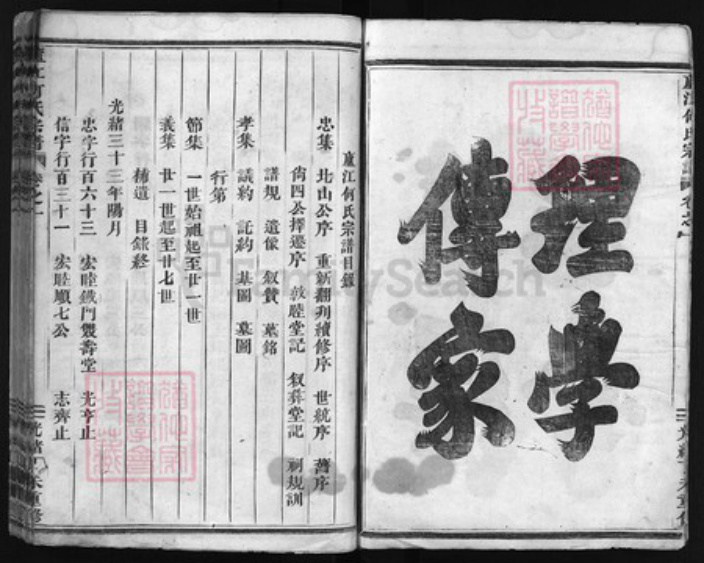 理學
傳家
廬江何氏宗譜目錄
忠集 北山公序 重新翻刋續修序 世統序 舊序
尙四公擇遷序 敦睦堂記 叙彝堂記 祠規訓
譜規 遺像 叙贊 墓銘
孝集 議約 託約 墓圖 墓圖
行第
節集 一世始祖起至廿一世
義集 廿一世起至廿七世
補遺 目錄終
光緒三十三年陽月
忠字行百六十三 宏睦鐵門 壽堂 光亨止
信字行百三十一 宏睦順七公 志齊止
廬江何氏宗譜 卷之一
光緒丁未重修
FamilySearch